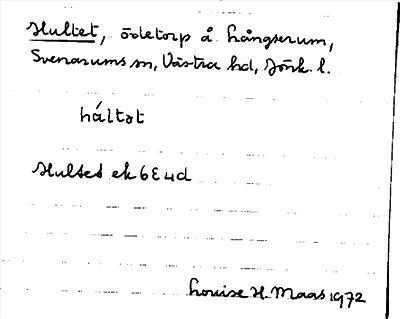 Hultet, ödetorp å Långserum,
Svenarums sn, Västra hd, Jönk. l.
háltət
Hultet ek 6E4d
Louise H. Maas 1972